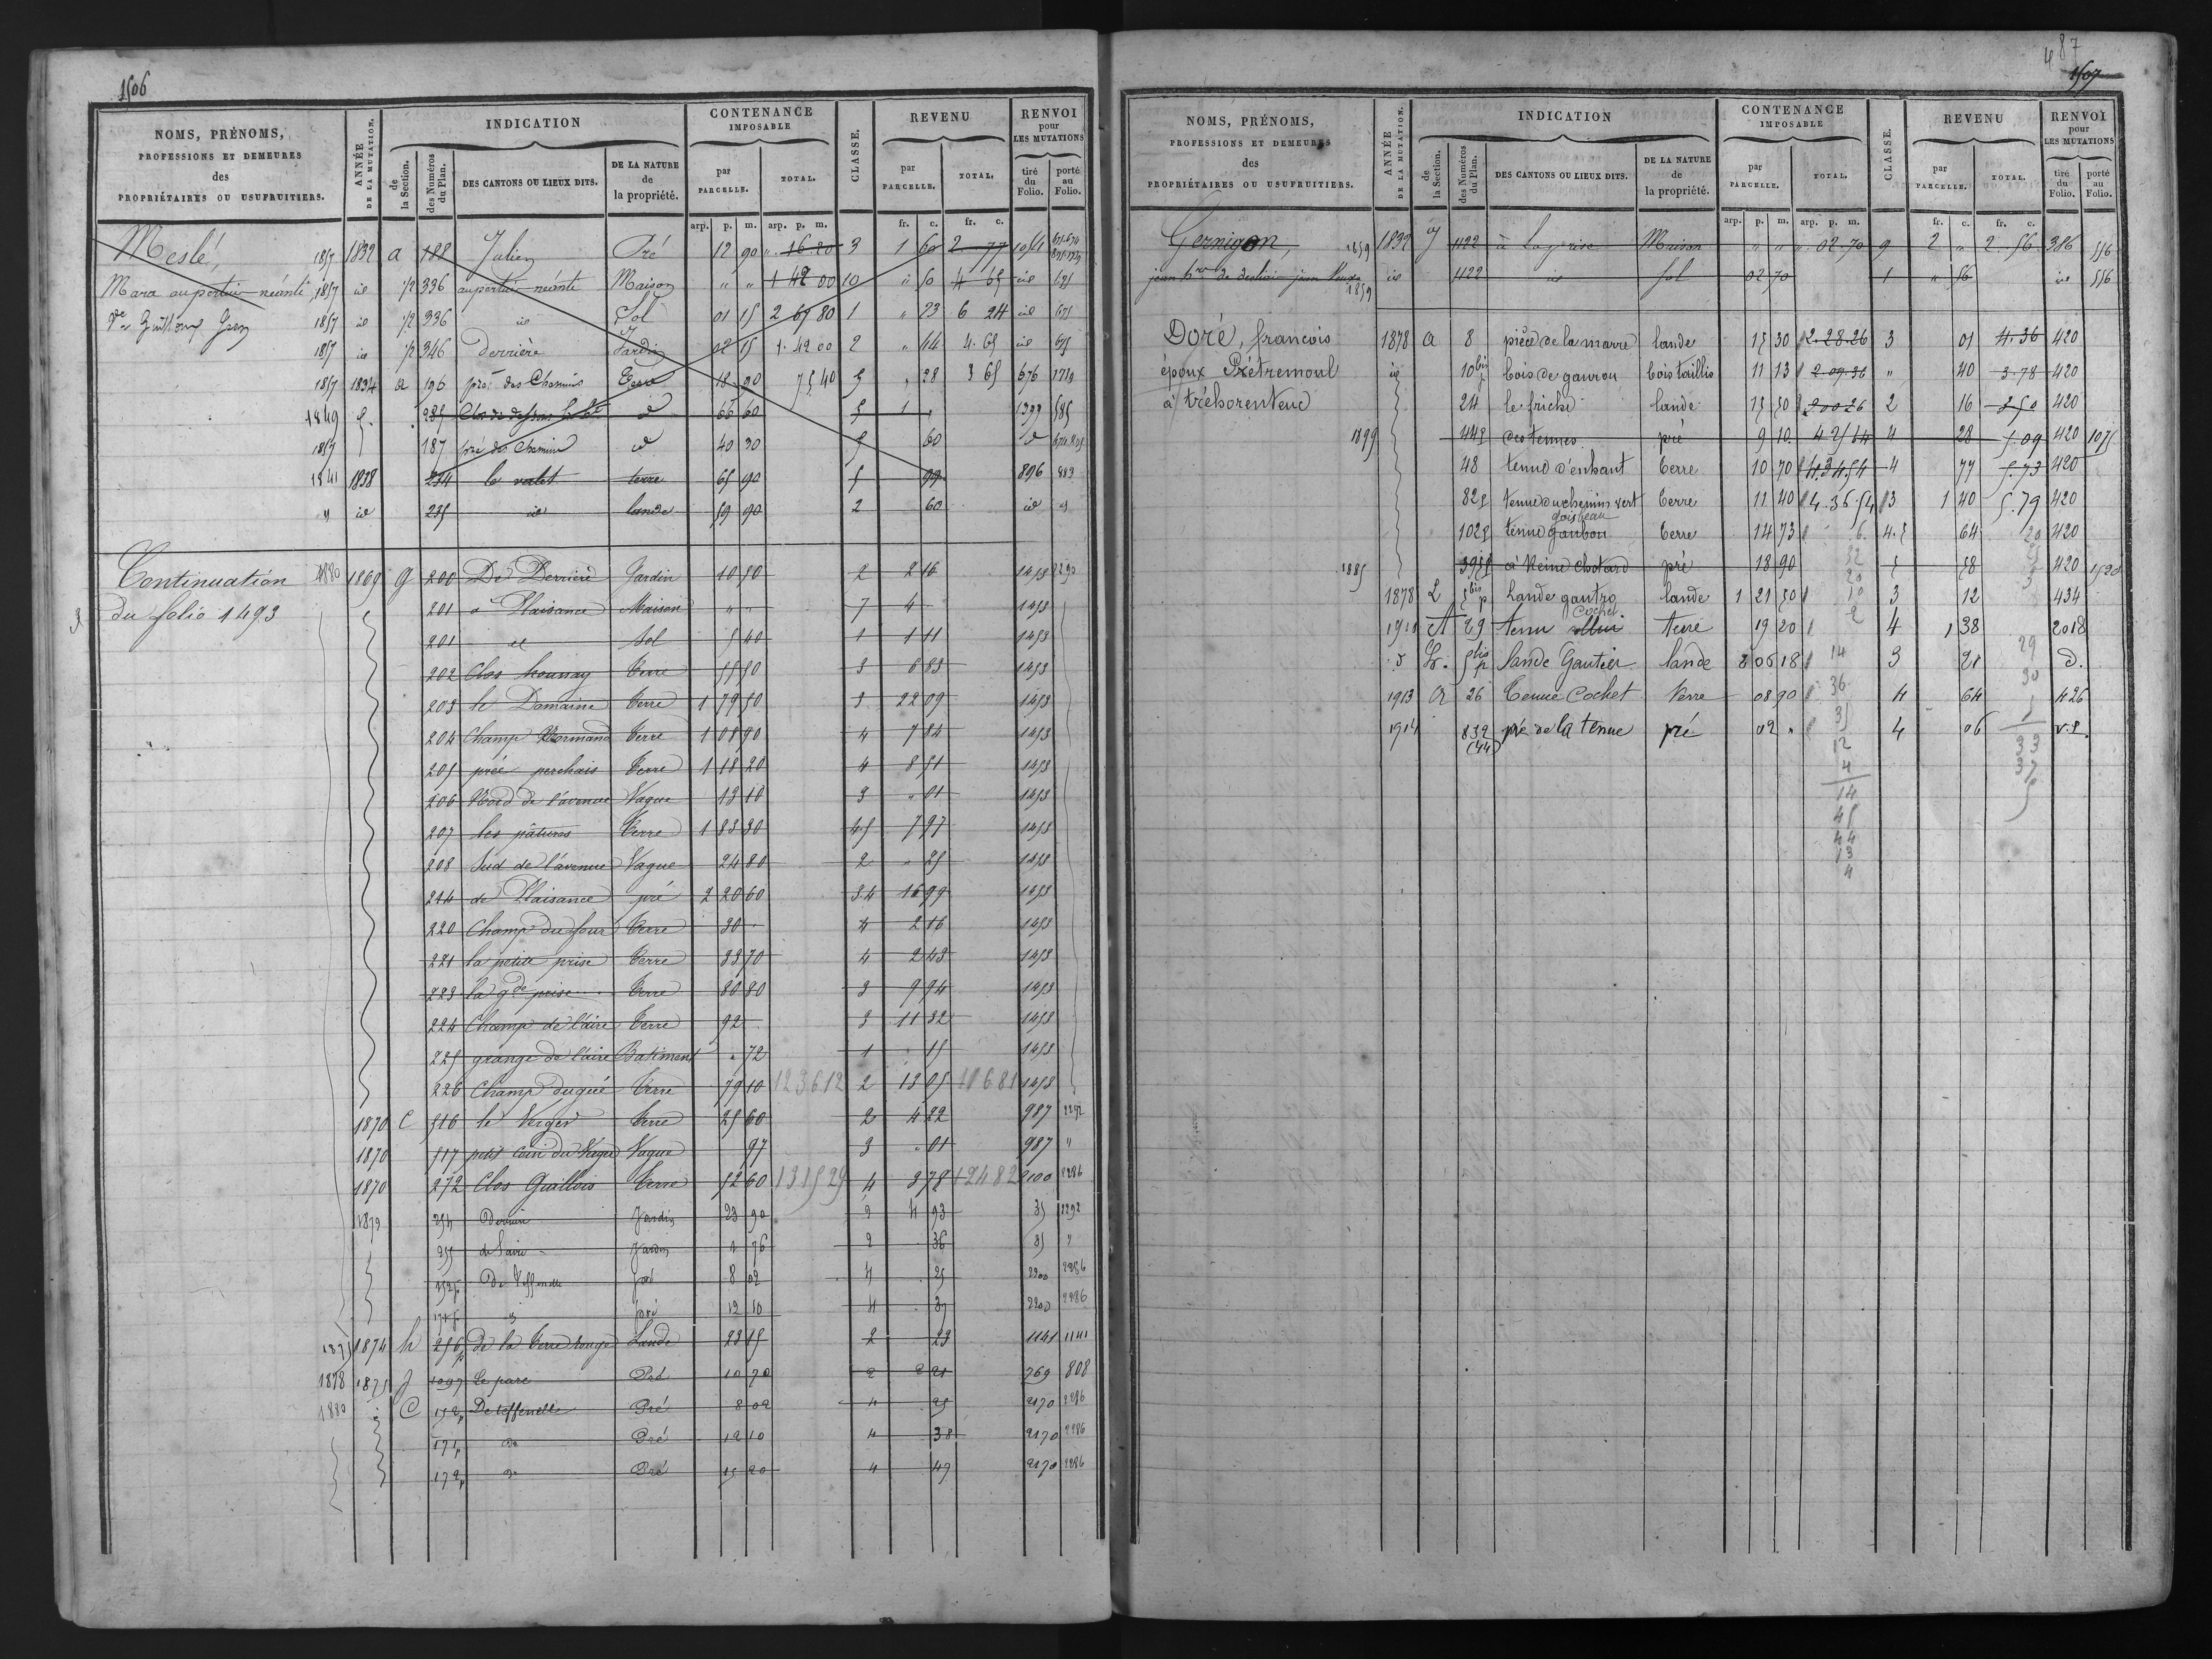 1506
NOMS, PRÉNOMS, PROFESSIONS ET DEMEURES des PROPRIÉTAIRES OU USUFRUITIERS.
ANNÉE DE LA MUTATION.
INDICATION
de la Section.
des Numéros du Plan.
DES CANTONS OU LIEUX DITS.
DE LA NATURE de la propriété.
CONTENANCE IMPOSABLE
par PARCELLE.
TOTAL.
CLASSE.
REVENU
par PARCELLE.
TOTAL.
RENVOI pour LES MUTATIONS
tiré du Folio.
porté au Folio.
arp. p. m. arp. p. m. fr. c. fr. c.
Meslé, 1857 1832 a 188 Julien Pré 12 90 " 16 20 3 1 60 2 77
Mara au pertuis néanti 1857 id 1/2 336 au pertuis néanti Maison " " 1 42 00 10 4 65 id 675
1857 id 1/2 336 id Sol 01 15 2 67 80 1 " 23 6 24 id 675
1857 id 1/2 346 Derrière Jardin 02 15 1. 42 00 2 " 44 4. 65 id 675
1857 1834 a 196 pré des Chemins Terre 18 90 75 40 5 " 28 3 65 676
1849 235 d 66 60 5 1 " 1399 585
1857 187 pré des Chemins d 40 30 5 60 d
1841 1838 234 le valet terre 65 90 5 99 896 883
" id 235 id lande 59 90 2 60 id
Continuation 1880 1869 g 200 De Derrière Jardin 10 50 2 2 16 1453 2290
du folio 1493 201 à Plaisance Maison " " 7 4 1453
201 id Sol 5 40 1 1 11 1453
202 Clos hounay Terre 55 50 3 6 83 1453
203 le Domaine Terre 1 79 50 3 22 09 1453
204 Champ Normand Terre 1 08 90 4 7 84 1453
205 préé perchais Terre 1 18 20 4 8 51 1453
206 Nord de l'avenue Vague 13 10 3 " 01 1453
207 les pâtures Terre 1 83 30 4.5 7 97 1453
208 Sud de l'avenue Vague 24 80 2 " 25 1453
214 de Plaisance pré 2 20 60 3.4 16 99 1453
220 Champ du four Terre 30 " 4 2 16 1453
221 la petite prise Terre 33 70 4 2 43 1453
223 la gde prise Terre 80 80 3 9 94 1453
224 Champ de l'aire Terre 92 3 11 32 1453
225 grange de l'aire Batiment " 72 1 " 15 1453
226 Champ du gué Terre 79 10 12 36 12 2 13 05 116 81 1453
1870 C 516 le Verger Terre 25 60 2 4 22 987 2292
1870 517 petit coin du Vague Vague 97 3 " 01 987 "
1870 272 Clos Guillois Terre 52 60 13 15 29 4 3 78 124 82 2100 2286
1879 254 Derrière Jardin 23 90 2 4 93 35 2292
255 de l'aire Jardin 1 76 2 36 35 "
152p pré 8 02 4 25 2200 2286
pré 12 10 4 37 2200 2286
1875 1874 h 256p De la Terre rouge Lande 23 15 2 23 1141 1141
1878 1875 f 1097 Le parc Pré 10 70 2 2 21 769 808
1880 C 152p De teffenelle Pré 8 02 4 25 2170 2286
171p do Pré 12 10 4 38 2170 2286
172p do Pré 15 20 4 47 2170 2286
487
1507
NOMS, PRÉNOMS, PROFESSIONS ET DEMEURES des PROPRIÉTAIRES OU USUFRUITIERS.
ANNÉE DE LA MUTATION.
INDICATION
de la Section.
des Numéros du Plan.
DES CANTONS OU LIEUX DITS.
DE LA NATURE de la propriété.
CONTENANCE IMPOSABLE
par PARCELLE.
TOTAL.
CLASSE.
REVENU
par PARCELLE.
TOTAL.
RENVOI pour LES MUTATIONS
tiré du Folio.
porté au Folio.
arp. p. m. arp. p. m. fr. c. fr. c.
Gernigon, 1859 1832 J 1122 à la prise Maison " " " 02. 70 9 2 " 2. 56 386 556
1859 id 1122 id Sol 02 70 1 " 56 id 556
Doré, francois 1878 a 8 pièce de la marre lande 15 30 2. 28. 26 3 01 4. 36 420
époux Prétremoul id 10bis bois de gaurou bois taillis 11 13 2. 09. 36 " 40 3. 78 420
à tréhorenteuc 24 le friche lande 15 50 2 00 26 2 16 3 50 420
1899 44p des tennes pré 9 10 4 25 64 4 28 5. 09 420 1075
48 tenue d'enhaut terre 10 70 4. 34. 54 4 77 5. 73 420
82p tenue du chemin vert terre 11 40 4. 36. 54 3 1 40 5. 79 420
102p tenue gaubou goisbeau terre 14 73 4.5 64 420
1885 395p à Reine Chotard pré 18 90 5 58 420 1520
1878 L 5bis p Lande gautro lande 1 21 50 3 12 434
1910 A 29 tenue Cochet terre 19 20 4 1 38 2018
d L. 5bis p lande Gautier lande 2 06 18 3 21 d.
1913 a 26 Tenue Cochet terre 08 90 4 64 426
1914 832 (44) pré de la tenue pré 02 " 4 06 v.s.